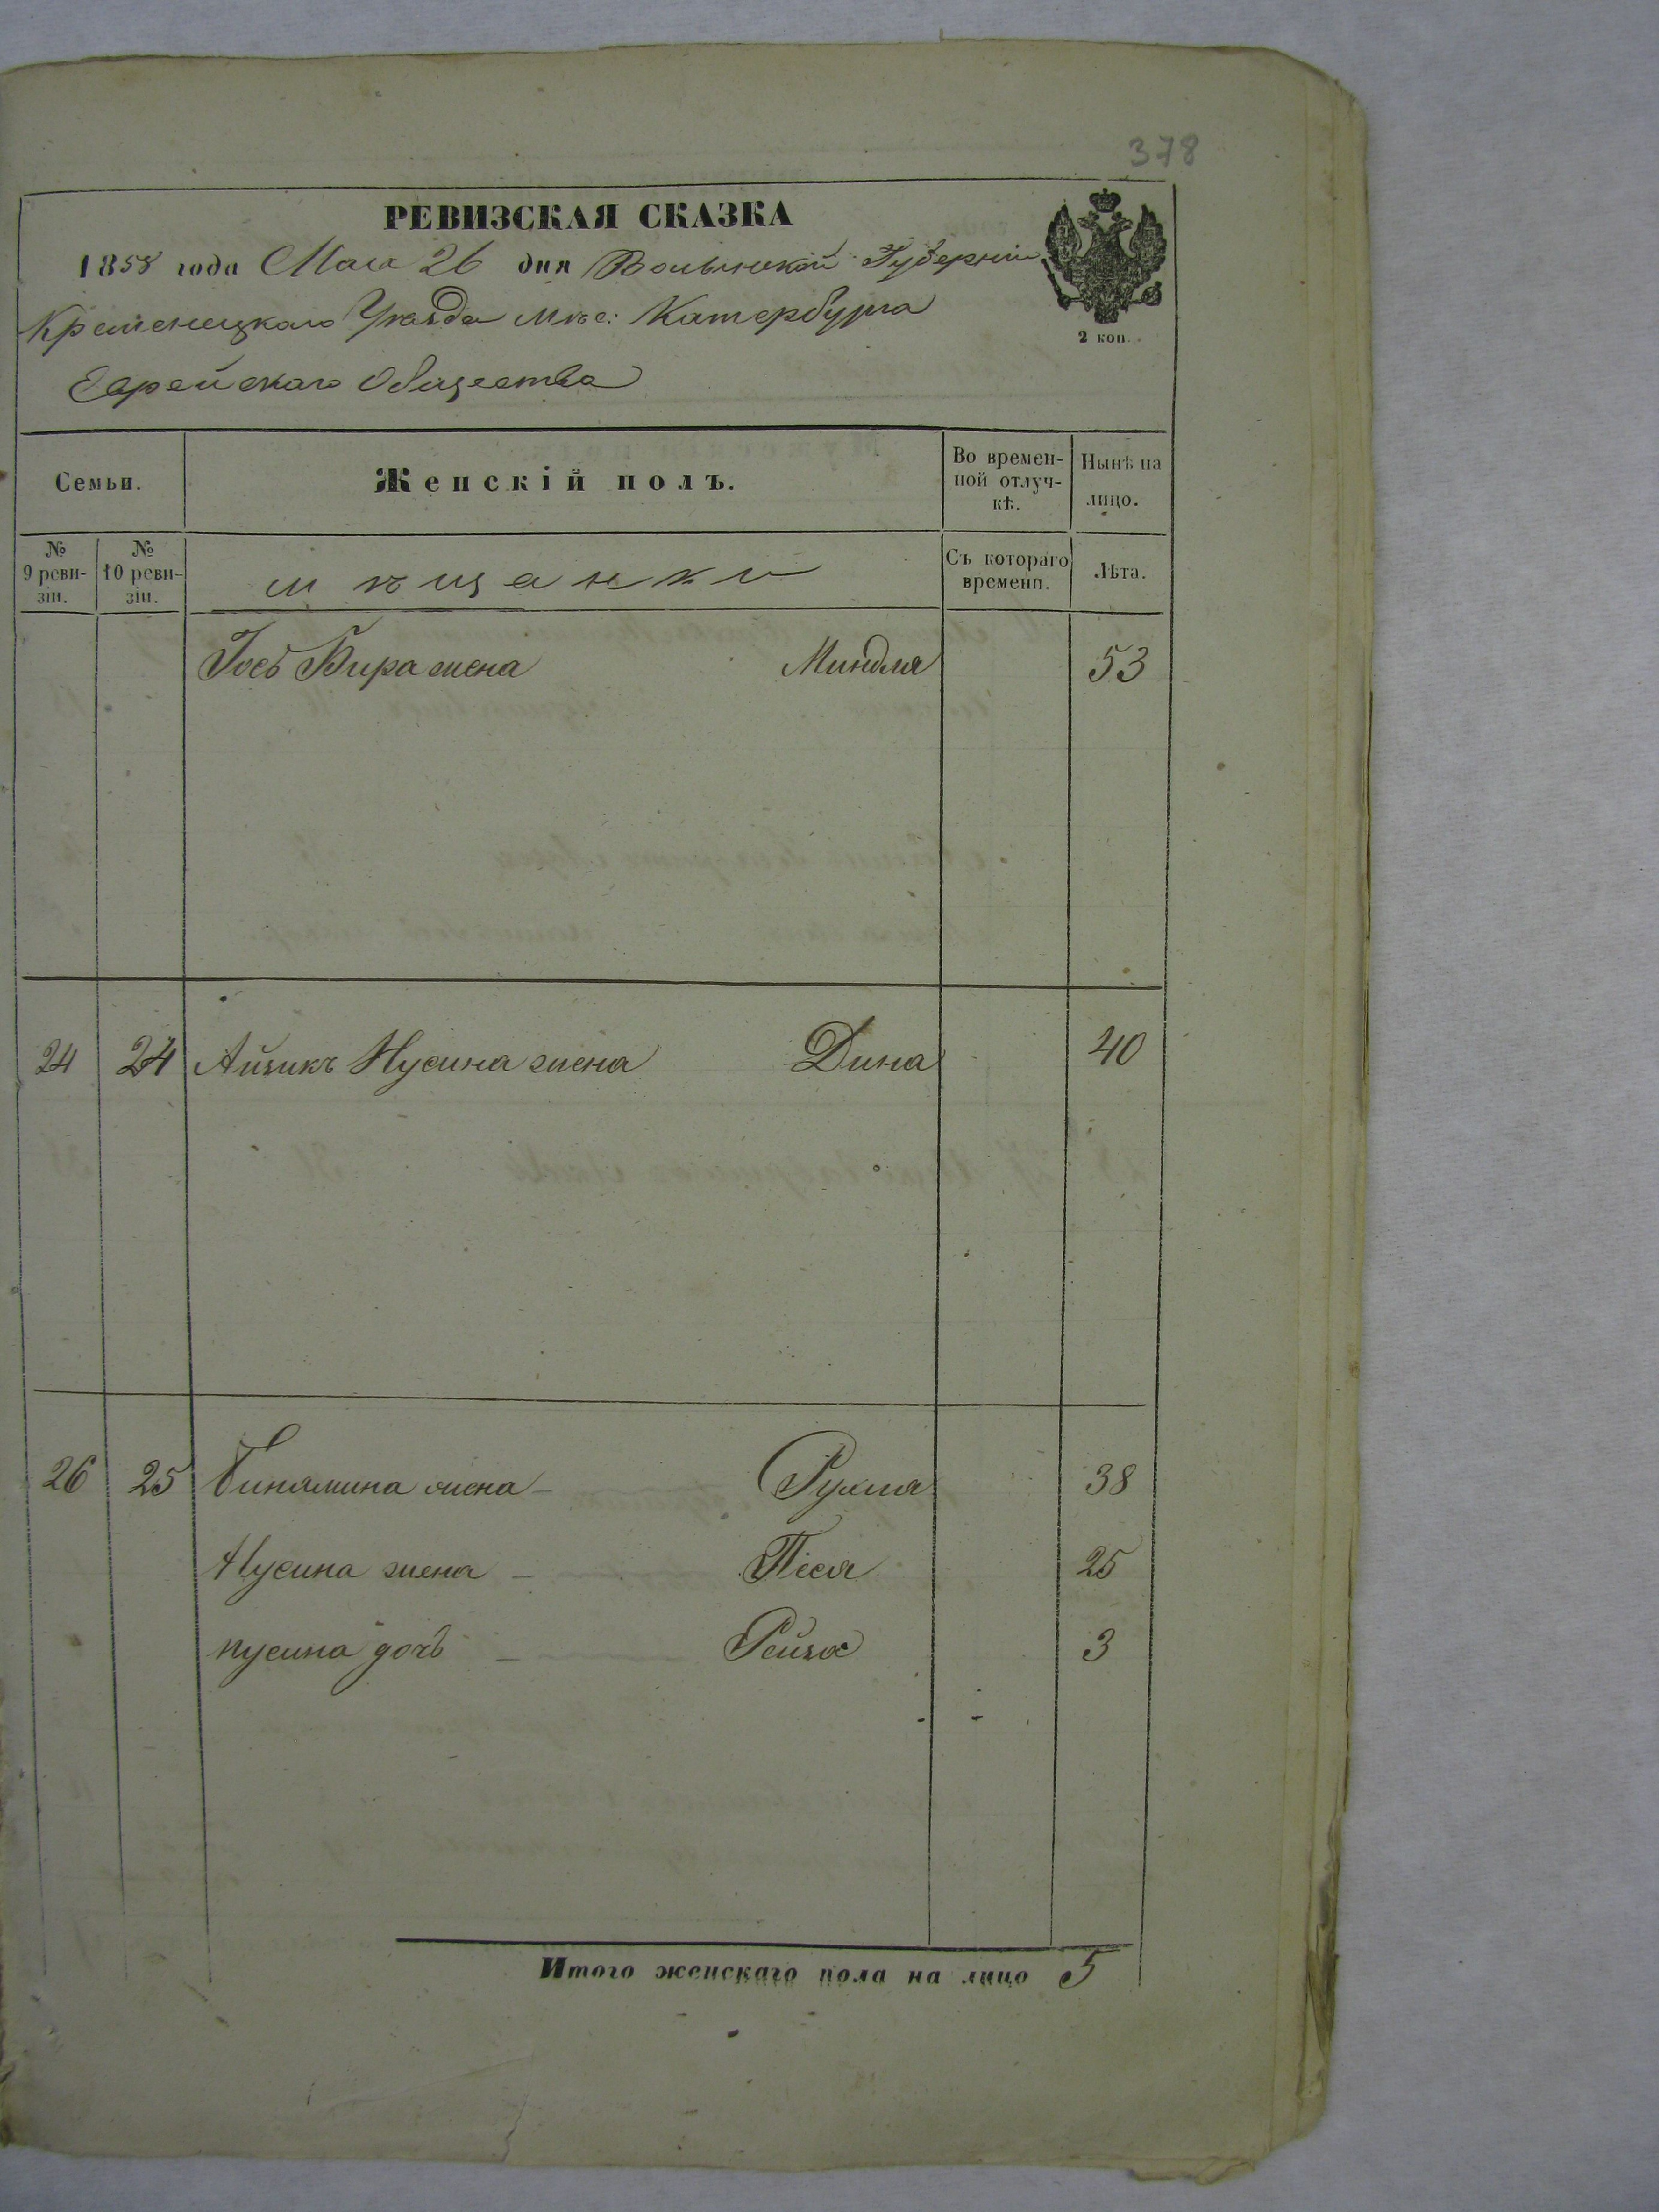 378
РЕВИЗСКАЯ СКАЗКА
1858 года Мая 26 дня Волынской Губерніи
Кременецкаго Уѣзда мѣс: Катербурга
2 коп.
Еврейскаго Общества
Семьи. Женскій полъ. Во времен-ной отлуч-кѣ. Нынѣ на лицо.
№ 9 реви-зіи. № 10 реви-зіи. мѣщанки Съ котораго времени. Лѣта.
Іось Бира жена Миндля 53
24 24 Айзикъ Нусина жена Дина 40
26 25 Бинямина жена Рухля 38
Нусина жена Піся 25
нусина дочь Рейза 3
Итого женскаго пола на лицо 5